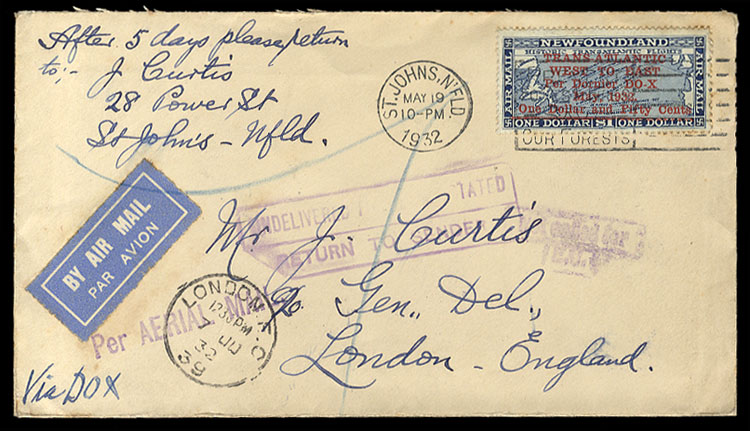 After 5 days please return
to;- J. Curtis
28 Power St
St John's - Nfld.
NEWFOUNDLAND
HISTORIC TRANSATLANTIC FLIGHTS
AIR MAIL
AIR MAIL
TRANS-ATLANTIC
WEST TO EAST
Per Dornier DO-X
May, 1932.
One Dollar and Fifty Cents
ONE DOLLAR $1 ONE DOLLAR
ST. JOHN'S, N'FLD.
MAY 19
10-PM
1932
OUR FORESTS
BY AIR MAIL
PAR AVION
UNDELIVERED
RETURN TO SENDER
Mr J. Curtis
c/o Gen., Del.,
London - England.
Per AERIAL MAIL
LONDON
39
Via DOX